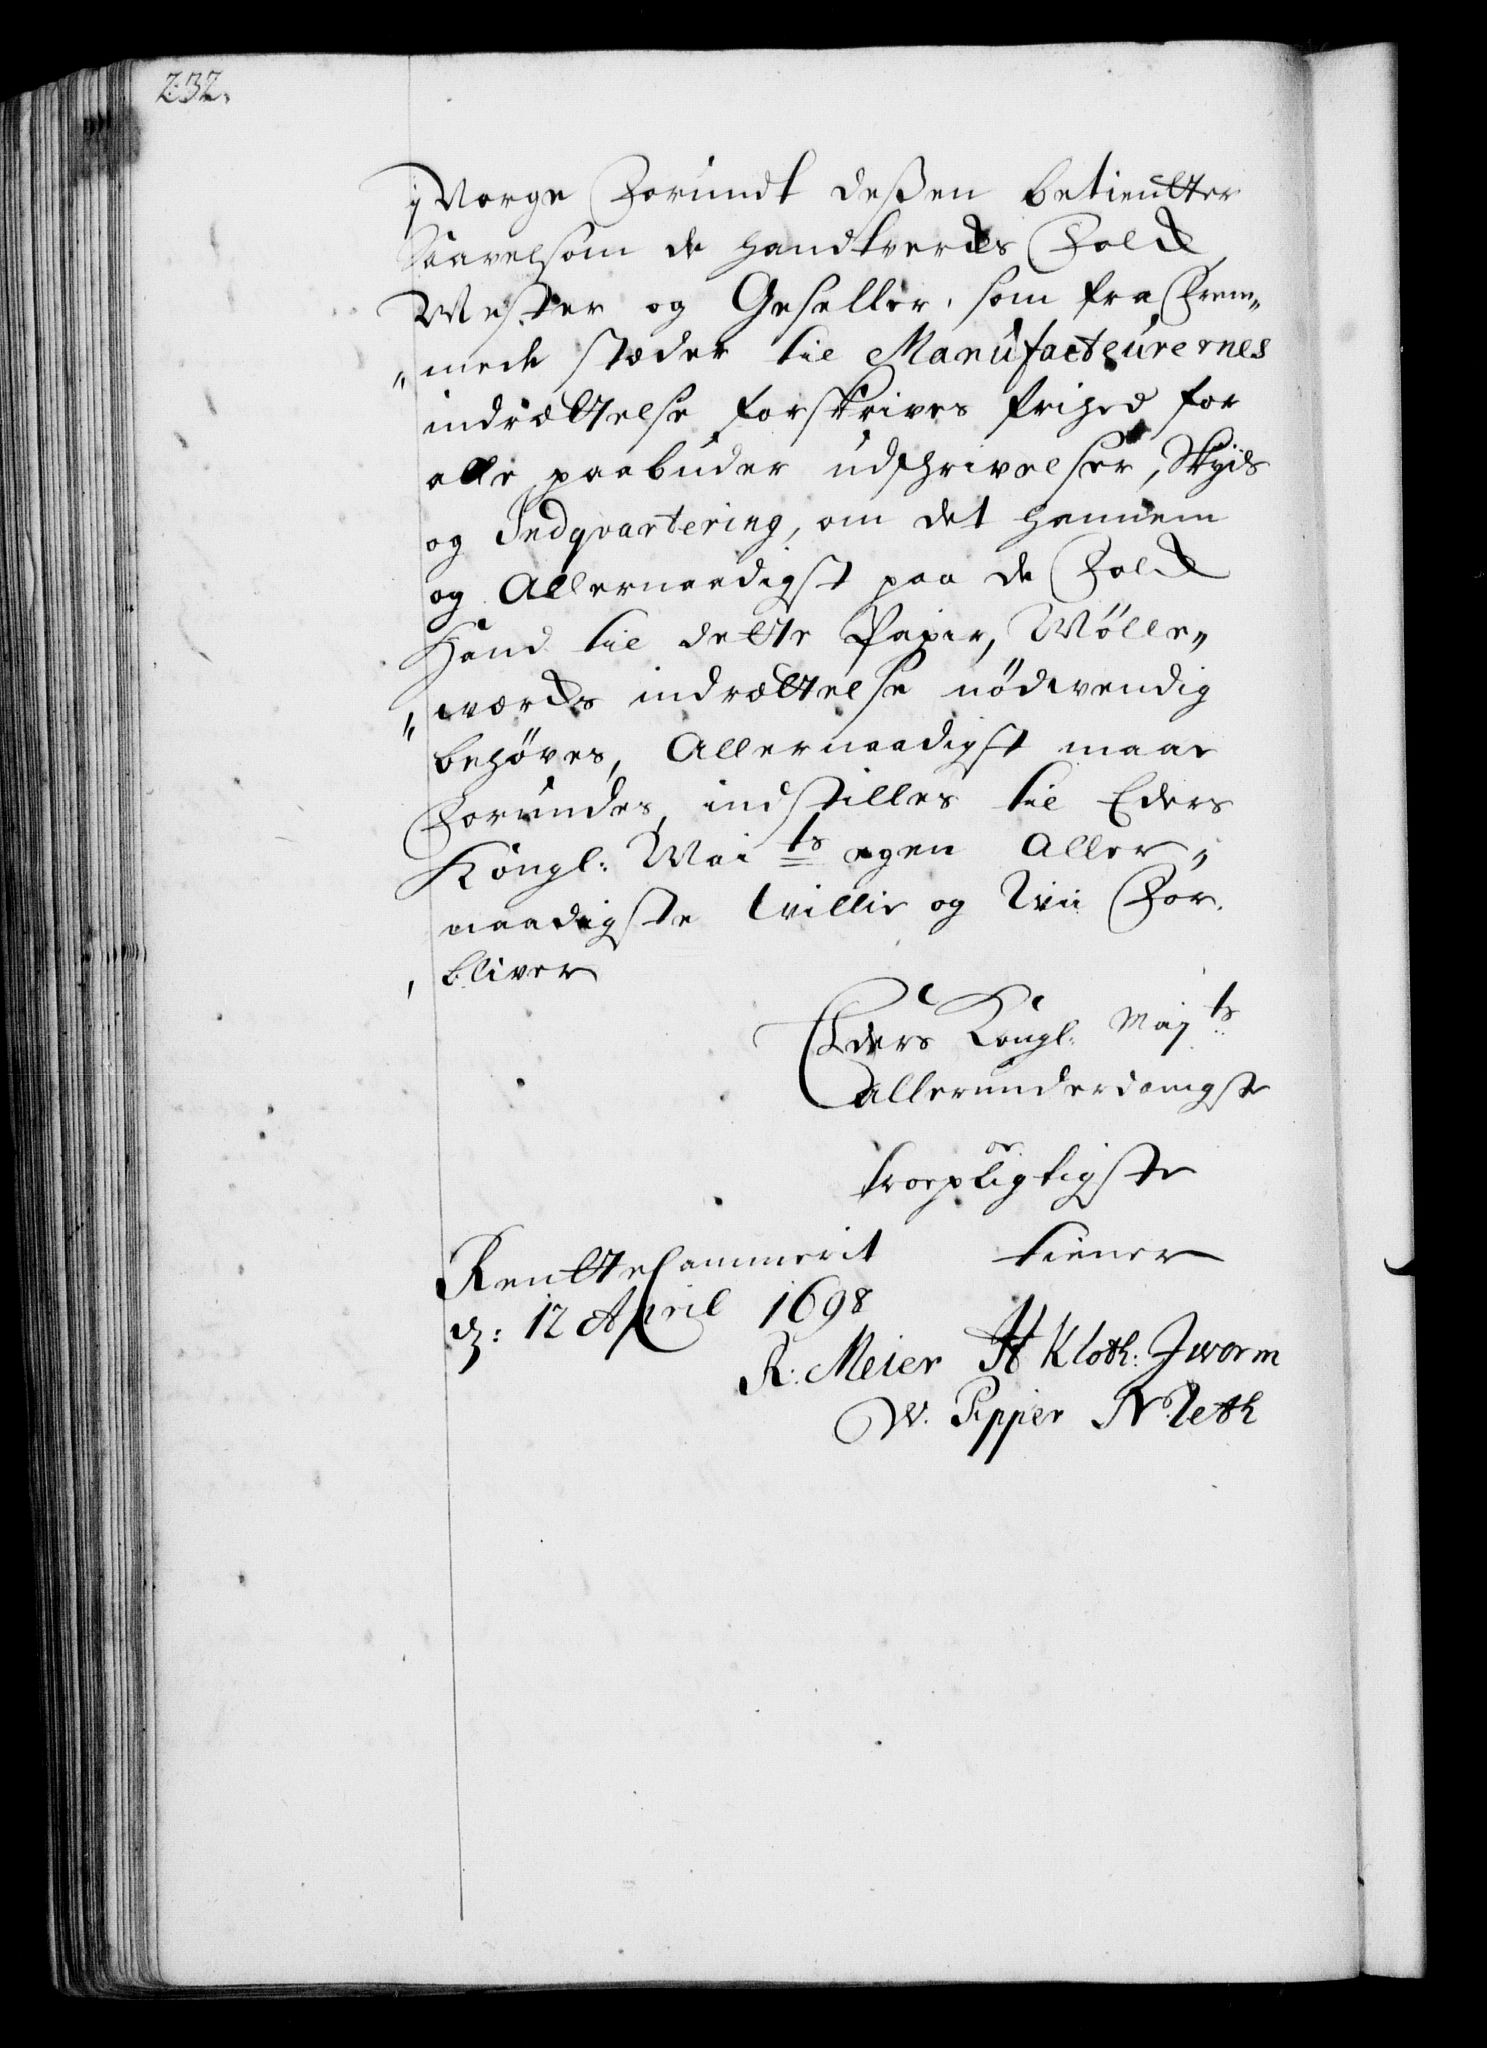 232.
i Norge Forundt deßen betientter
Saavelsom de Handtverks Folck
Mester og Geseller, som fra Frem„
„mede stæder til Manufacteurernes
indrættelse forskrives frihed for
alle paabuder udschrivelser, Skyds
og Indqvartering, om det hannem
og Allernaadigst paa de Folck
Hand til dette Papir, Mölle„
„wærcks indrættelse nödwendig
behöves, Allernaadigst maae
Forundes, indstilles til Eders
Köngl: Mai ts egen Aller„
naadigste willie og Wii For„
„bliver
Eders Kongl: Maj ts
allerunderdanigste
troepligtigste
tiener
Renttecammerit
d: 12 April 1698
R: Meier H Kloth: J worm
W. Pipper N: Leth